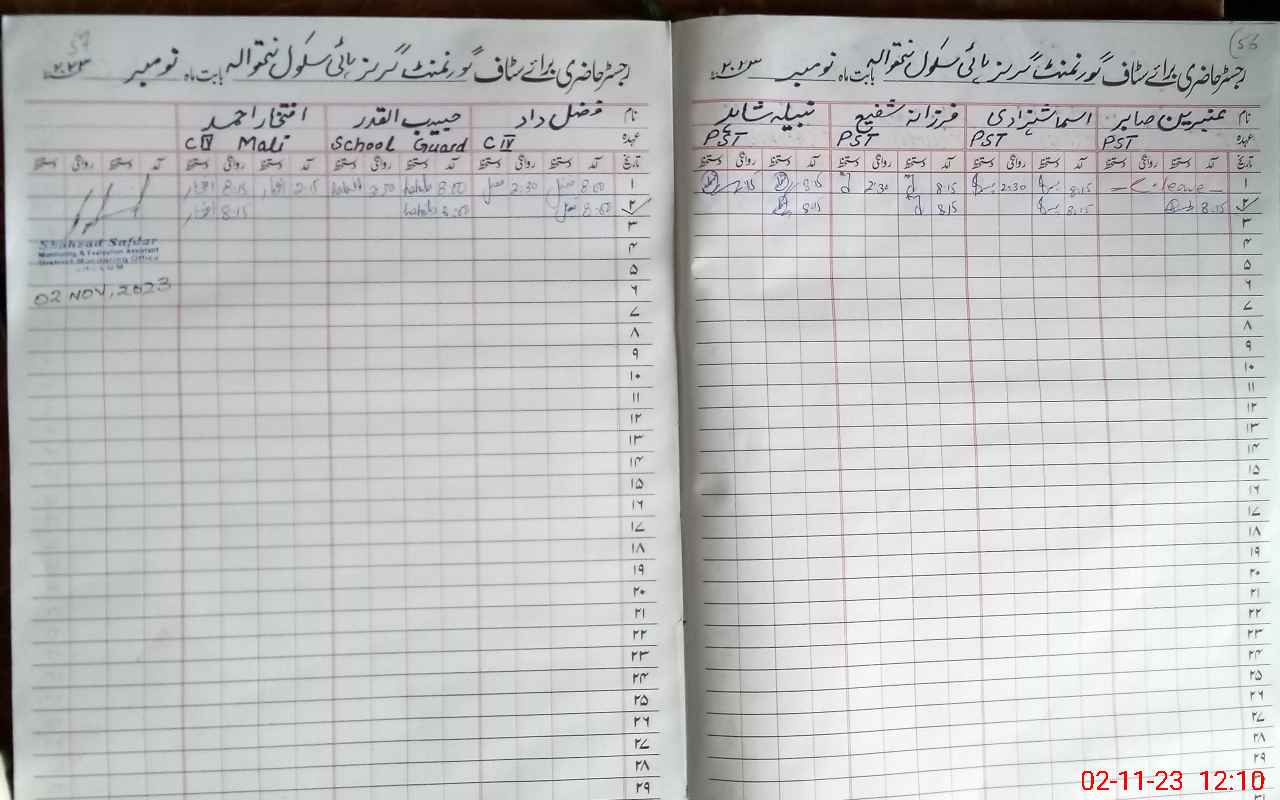 56
رجسٹر حاضری برائے سٹاف گورنمنٹ گرلز ہائی سکول نتھوالہ بابت ماہ نومبر ۲۰۲۳
نام عنبرین صابر اسما شہزادی فرزانہ شفیع نبیلہ شاہد
عہدہ PST PST PST PST
تاریخ آمد دستخط روانگی دستخط آمد دستخط روانگی دستخط آمد دستخط روانگی دستخط آمد دستخط روانگی دستخط
۱ C. leave 8.15 2:30 8.15 2:30 8.15 2:15
۲ 8.15 8.15 8.15 8.15
۳
۴
۵
۶
۷
۸
۹
۱۰
۱۱
۱۲
۱۳
۱۴
۱۵
۱۶
۱۷
۱۸
۱۹
۲۰
۲۱
۲۲
۲۳
۲۴
۲۵
۲۶
۲۷
۲۸
۲۹
57
رجسٹر حاضری برائے سٹاف گورنمنٹ گرلز ہائی سکول نتھوالہ بابت ماہ نومبر ۲۰۲۳
نام فضل داد حبیب القدر افتخار احمد
عہدہ C IV School Guard C IV Mali
تاریخ آمد دستخط روانگی دستخط آمد دستخط روانگی دستخط آمد دستخط روانگی دستخط آمد دستخط روانگی دستخط
۱ 8:00 2:30 8:00 2:30 2:15 8:15
۲ 8:00 8:00 8:15
۳
Shahzad Safdar
Monitoring & Evaluation Assistant
District Monitoring Office
۴
۵
۶
02 NOV, 2023
۷
۸
۹
۱۰
۱۱
۱۲
۱۳
۱۴
۱۵
۱۶
۱۷
۱۸
۱۹
۲۰
۲۱
۲۲
۲۳
۲۴
۲۵
۲۶
۲۷
۲۸
۲۹
02-11-23 12:10